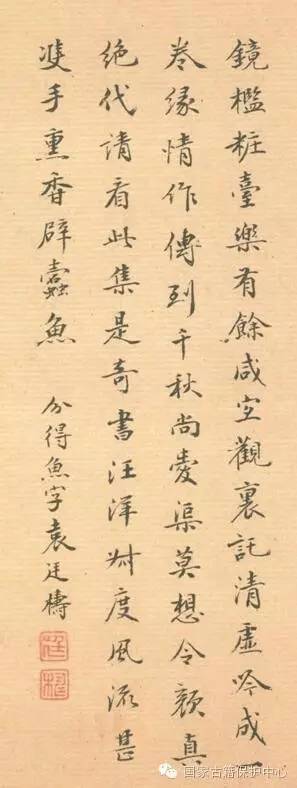 鏡檻粧臺樂有餘咸宜觀裏託清虛吟成一
卷緣情作傳到千秋尚愛渠莫想令顏真
絕代請看此集是奇書汪洋叔度風流甚
雙手熏香辟蠹魚 分得魚字袁廷檮
廷
檮
国家古籍保护中心